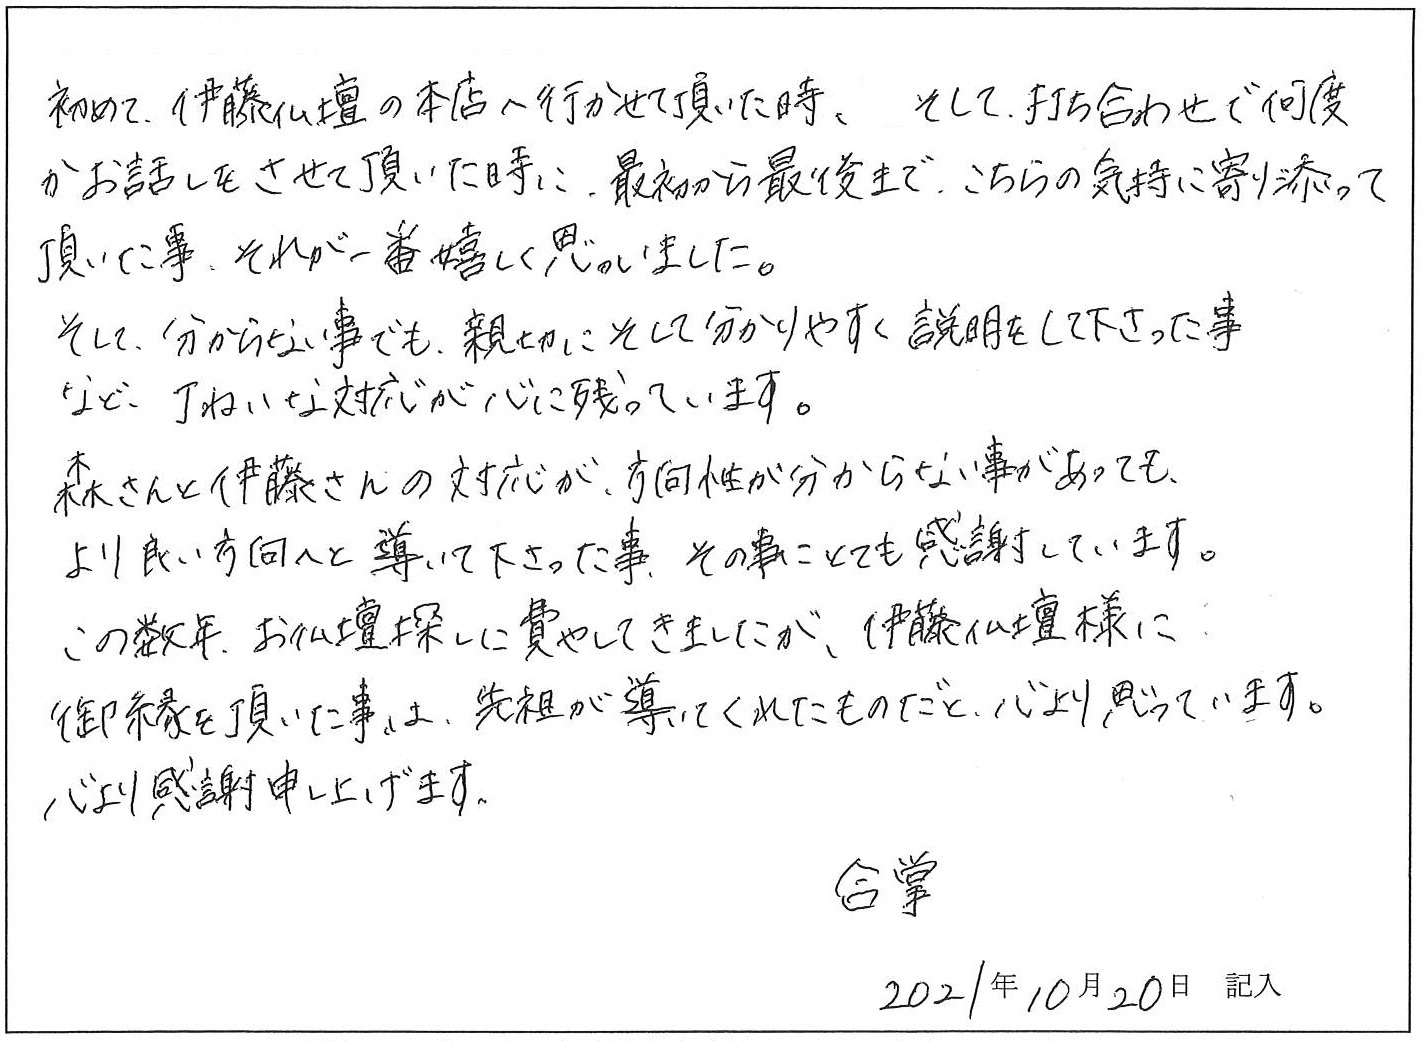 初めて、伊藤仏壇の本店へ行かせて頂いた時、　そして、打ち合わせで何度
かお話しをさせて頂いた時に、最初から最後まで、こちらの気持に寄り添って
頂いた事、それが一番嬉しく思いました。
そして、分からない事でも、親切にそして分かりやすく説明をして下さった事
など、丁ねいな対応が心に残っています。
森さんと伊藤さんの対応が、方向性が分からない事があっても、
より良い方向へと導いて下さった事、その事にとても感謝しています。
この数年、お仏壇探しに費やしてきましたが、伊藤仏壇様に
御縁を頂いた事は、先祖が導いてくれたものだと、心より思っています。
心より感謝申し上げます。
合掌
2021年10月20日　記入